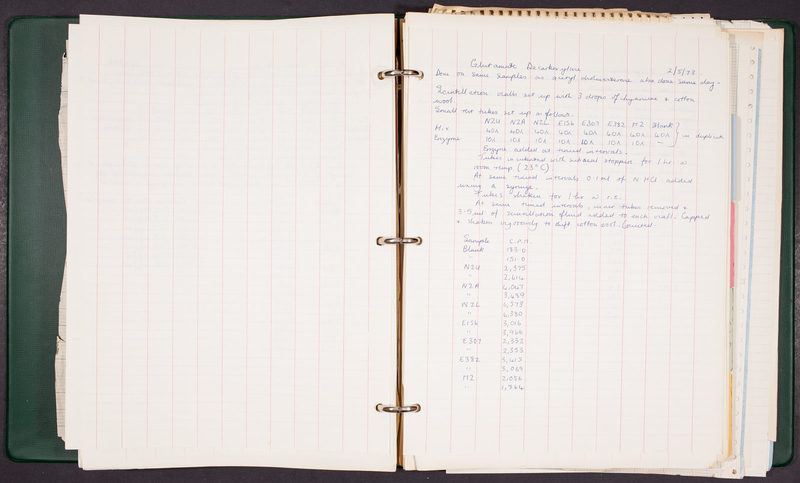 Glutamate Decarboxylase 2/5/73
Done on same samples as acetyl cholinesterase also done same day.
Scintillation vials set up with 3 drops of hyamine & cotton
wool.
Small test tubes set up as follows.
N2U N2A N2L E156 E307 E382 M2 Blank
Mix 40λ 40λ 40λ 40λ 40λ 40λ 40λ 40λ in duplicate
Enzyme 10λ 10λ 10λ 10λ 10λ 10λ 10λ —
Enzyme added at timed intervals.
Tubes incubated with subseal stoppers for 1 hr @
room temp (23°C).
At same timed intervals 0.1 ml of N HCl added
using a syringe.
Tubes shaken for 1 hr @ r.t.
At same timed intervals, inner tubes removed &
of scintillation fluid added to each vial. Capped
& shaken vigorously to shift cotton wool. Counted.
Sample C.P.M.
Blank 183.0
" 151.0
N2U 2,575
" 2,614
N2A 4,047
" 3,489
N2L 4,573
" 4,380
E156 3,016
" 3,966
E307 2,333
" 2,353
E382 3,413
" 3,069
M2 2,086
" 1,964